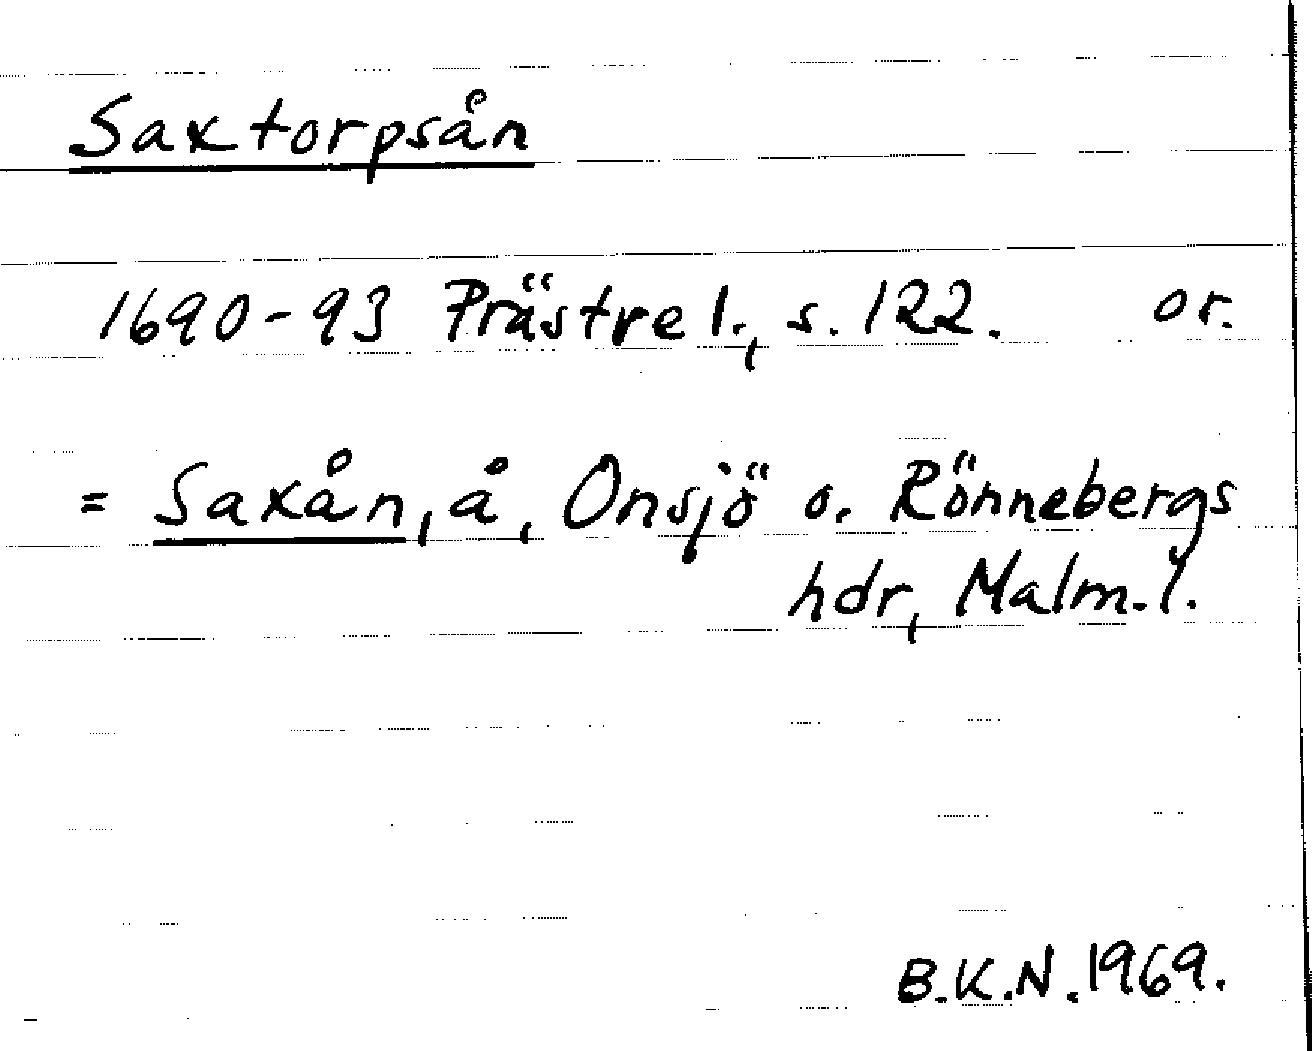 Saxtorpsån
1690-93 Prästrel., s. 122. or.
= Saxån, å, Onsjö o. Rönnebergs
hdr, Malm. l.
B.K.N. 1969.